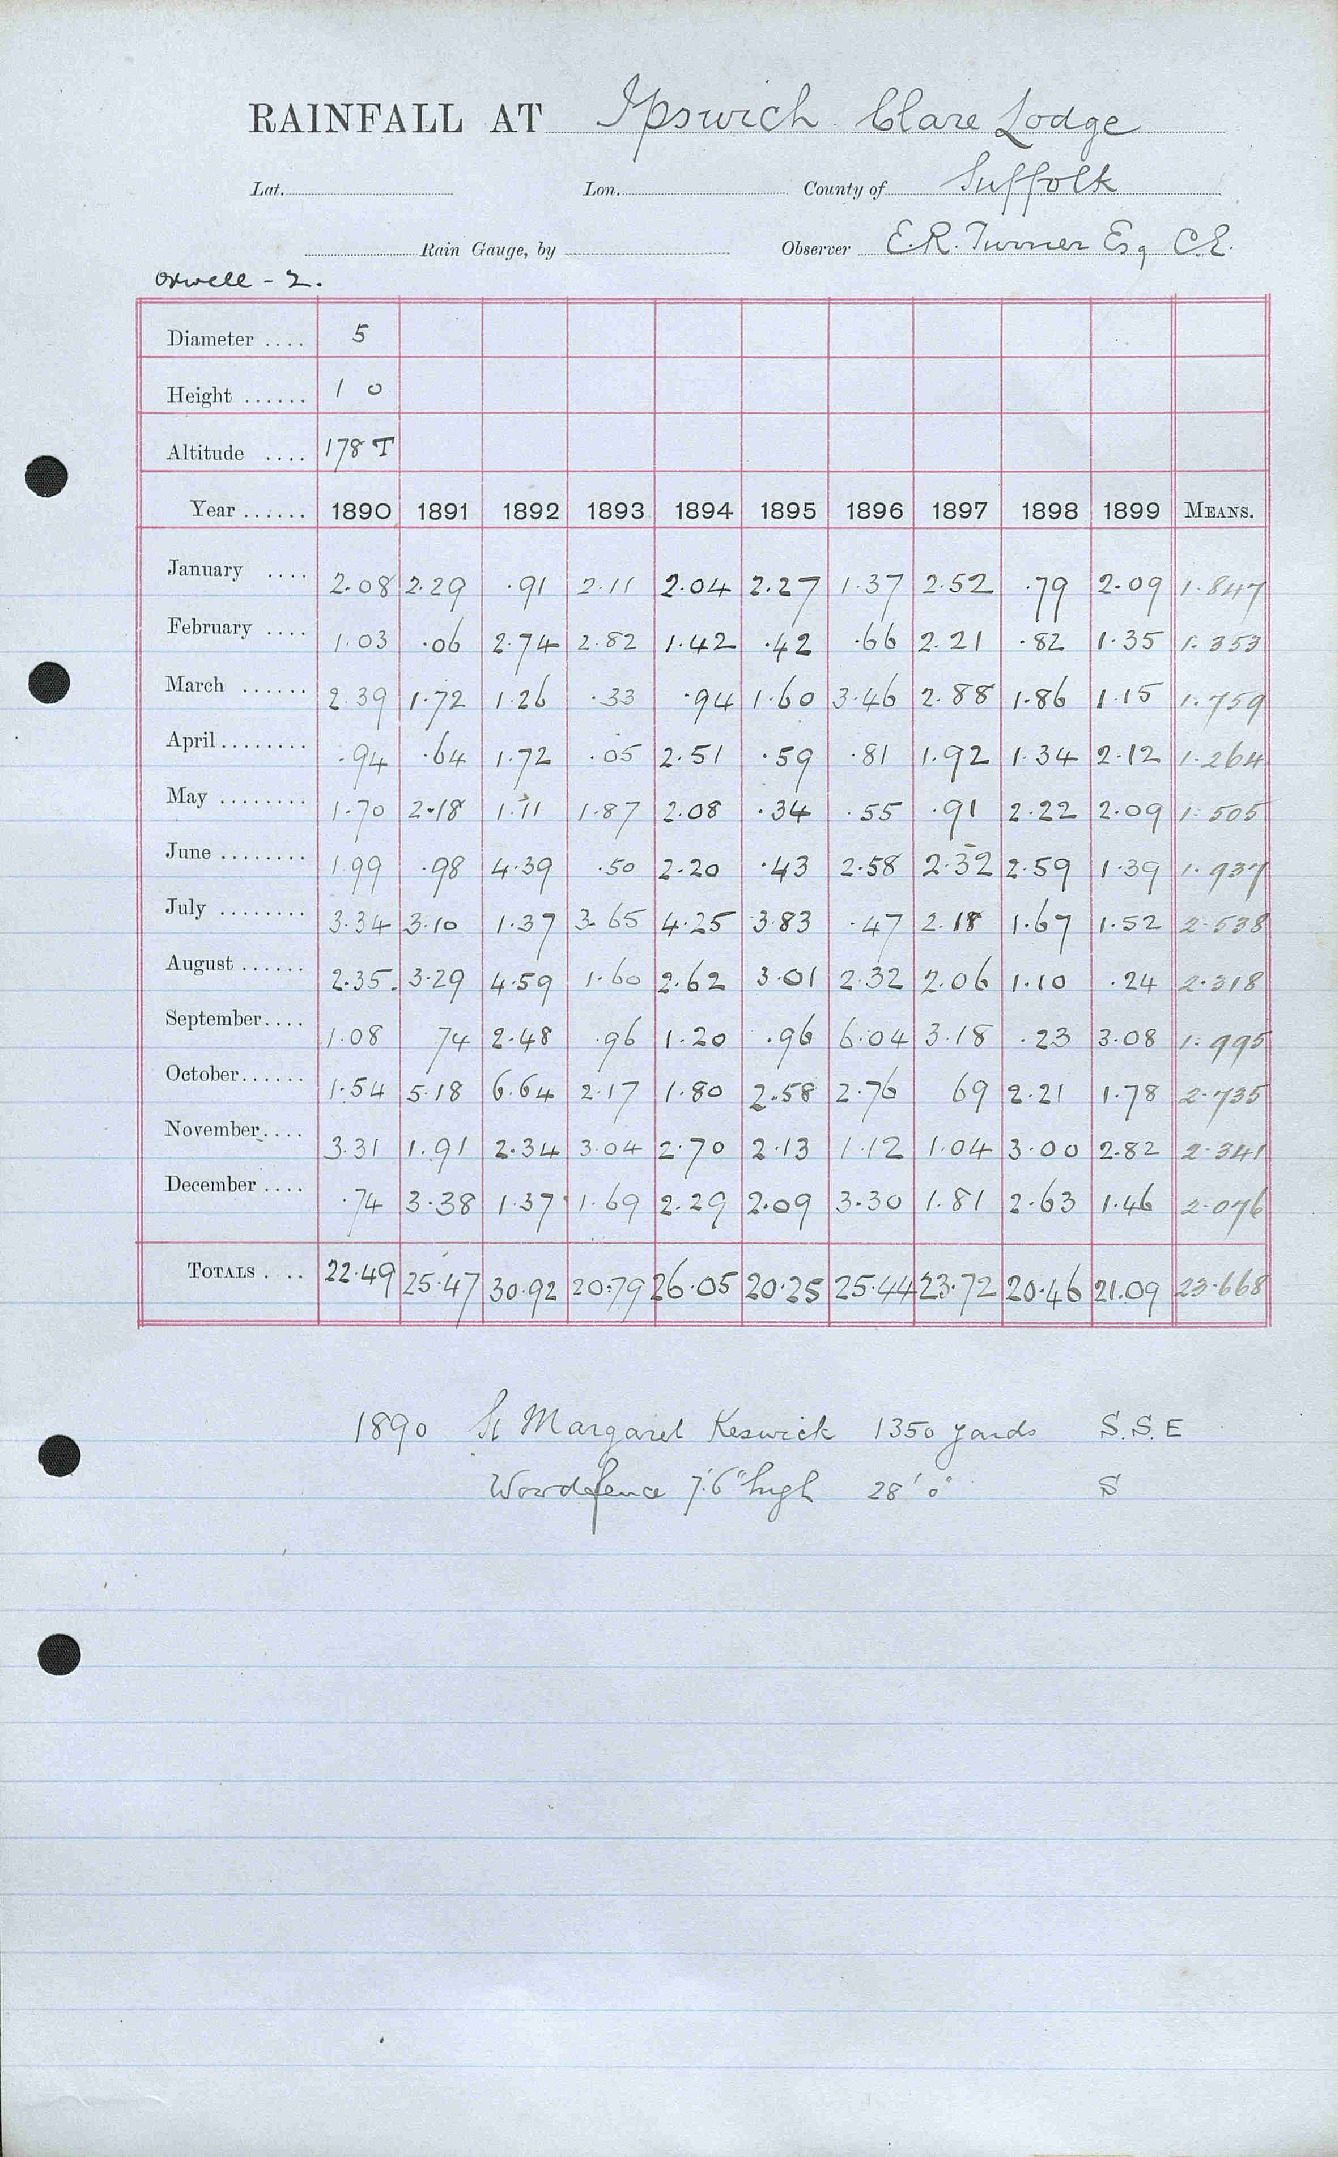 RAINFALL AT Ipswich Clare Lodge
Lat. Lon. County of Suffolk
Rain Gauge, by Observer E.R. Turner Esq C.E.
Orwell - 2.
Diameter .... 5
Height ...... 1 0
Altitude .... 178 T
Year ...... 1890 1891 1892 1893 1894 1895 1896 1897 1898 1899 MEANS.
January .... 2.08 2.29 .91 2.11 2.04 2.27 1.37 2.52 .79 2.09 1.847
February .... 1.03 .06 2.74 2.82 1.42 .42 .66 2.21 .82 1.35 1.353
March ...... 2.39 1.72 1.26 .33 .94 1.60 3.46 2.88 1.86 1.15 1.759
April ........ .94 .64 1.72 .05 2.51 .59 .81 1.92 1.34 2.12 1.264
May ........ 1.70 2.18 1.11 1.87 2.08 .34 .55 .91 2.22 2.09 1.505
June ........ 1.99 .98 4.39 .50 2.20 .43 2.58 2.32 2.59 1.39 1.937
July ........ 3.34 3.10 1.37 3.65 4.25 3.83 .47 2.18 1.67 1.52 2.538
August ...... 2.35. 3.29 4.59 1.60 2.62 3.01 2.32 2.06 1.10 .24 2.318
September.... 1.08 74 2.48 .96 1.20 .96 6.04 3.18 .23 3.08 1.995
October...... 1.54 5.18 6.64 2.17 1.80 2.58 2.76 69 2.21 1.78 2.735
November.... 3.31 1.91 2.34 3.04 2.70 2.13 1.12 1.04 3.00 2.82 2.341
December .... .74 3.38 1.37 1.69 2.29 2.09 3.30 1.81 2.63 1.46 2.076
TOTALS .... 22.49 25.47 30.92 20.79 26.05 20.25 25.44 23.72 20.46 21.09 23.668
1890 St Margaret Keswick 1350 yards S.S.E
Wood fence 7'.6" high 28' 0" S